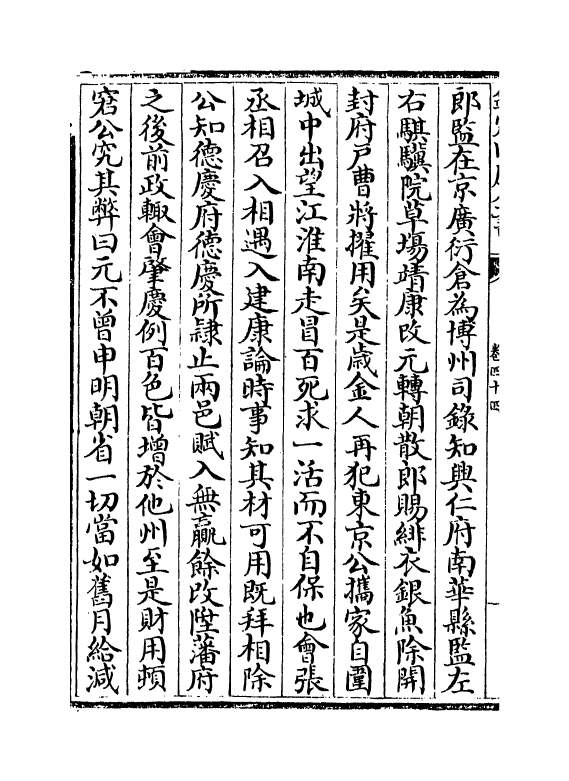 卷四十四
郎監在京廣衍倉為博州司錄知興仁府南華縣監左
右騏驥院草場靖康改元轉朝散郎賜緋衣銀魚除開
封府戶曹將擢用矣是歲金人再犯東京公攜家自圍
城中出望江淮南走冒百死求一活而不自保也會張
丞相召入相遇入建康論時事知其材可用既拜相除
公知德慶府德慶所隷止兩邑賦入無贏餘改陞藩府
之後前政輙會肇慶例百色皆增於他州至是財用頓
窘公究其弊曰元不曾申明朝省一切當如舊月給減